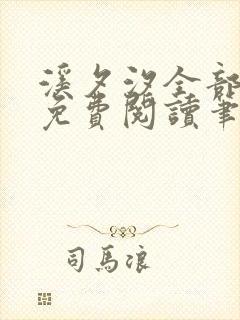 溪夕汐全部
免費閱讀筆
司馬浪